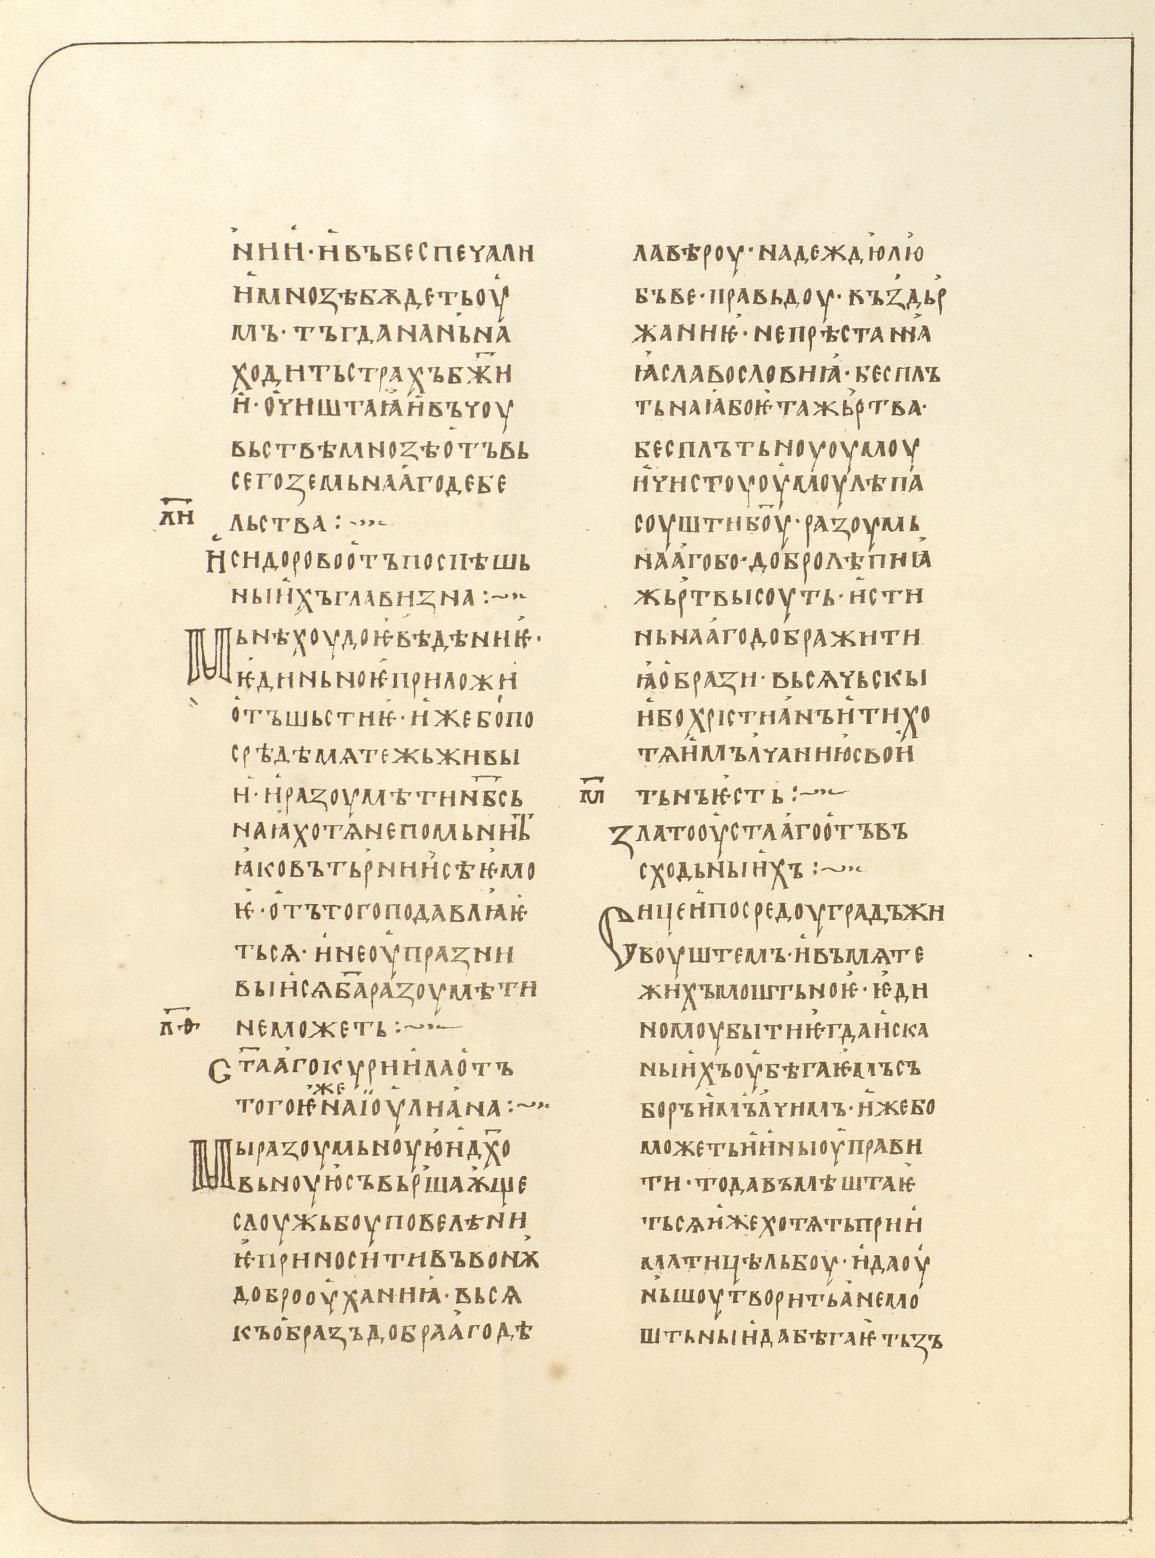 нии· и въ беспечали
и мнозѣ бѫдеть оу
мъ· тъгда на нь на
ходить страхъ бжи
и· оучиштаꙗи въ чоу
вьствѣ мнозѣ отъ вь
сего земьнааго дебе
льства :~
л҃и
исидорово отъ поспѣшь
ныихъ главизна :~
Мънѣ хоудоѥ вѣдѣниѥ·
ѥдиньноѥ приложи
отъшьстиѥ· иже бо по
срѣдѣ мѧтежь живы
и· и разоумѣти нб҃сь
наꙗ хотѧ не помьнить
ꙗко въ тьрнии сѣѥмо
ѥ· отъ того подавлꙗѥ
ться· и не оупразни
выисѧ б҃а разоумѣти
л҃ѳ
не можеть :~
ст҃ааго курила отъ
того ѥже на иоулиана :~
Мы разоумьноую и дх҃о
вьноую съвьршаѭще
слоужьбоу повелѣни
ѥ приносити въ вонѭ
доброоуханиꙗ· вьсѧ
къ образъ добрааго дѣ
ла вѣроу· надеждю лю
бъве· правьдоу· къздьр
жаниѥ· непрѣстаньꙗ
ꙗ славословиꙗ· беспль
тьнаꙗ бо ѥ та жьртва·
бесплътьноуоумоу
и чистоуоумоу лѣпа
соушти боу҃· разоумь
нааго бо· добролѣпиꙗ
жьртвы соуть· исти
ньнааго добра жити
ꙗ образи· вьсѧчьскы
ибо христианъ и тихо
тѧ имъ лучанию свои
м҃
тьнъ ѥсть :~
златооустааго отъ въ
сходьныихъ :~
Сице и посредоу градъ жи
воуштемъ· и въ мѧте
жихъ моштьноѥ· ѥди
номоу быти ѥгда иска
ныихъ оубѣгаѥмъ съ
боръ имъ лучимъ· иже бо
можеть и ины оуправи
ти· то да въмѣштаѥ
тьсѧ иже хотѧть прии
мати цѣльбоу· и да оу
ньшоу творить а немо
штьныи да бѣгаѥть зъ